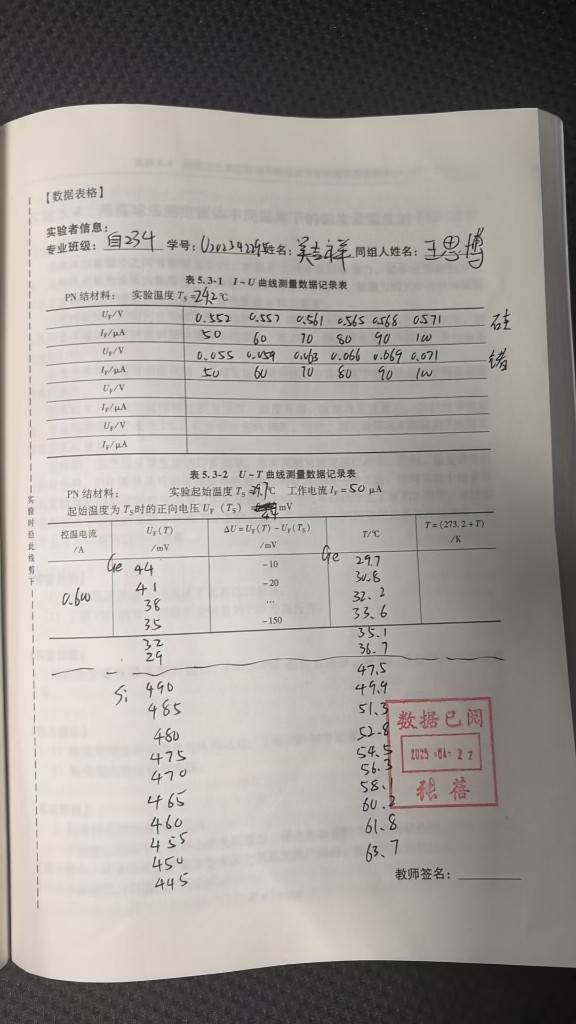 【数据表格】
实验者信息：
专业班级： 自234 学号： U202342291 姓名： 吴吉祥 同组人姓名： 王思博
表 5.3-1 I～U 曲线测量数据记录表
PN结材料： 实验温度 Ts = 24.2 ℃
UF/V 0.552 0.557 0.561 0.565 0.568 0.571 硅
IF/μA 50 60 70 80 90 100
UF/V 0.055 0.059 0.063 0.066 0.069 0.071 锗
IF/μA 50 60 70 80 90 100
UF/V
IF/μA
UF/V
IF/μA
表 5.3-2 U～T 曲线测量数据记录表
PN结材料： 实验起始温度 Ts = 29.7 ℃ 工作电流 IF = 50 μA
起始温度为 Ts时的正向电压 UF（Ts） = 44 mV
控温电流/A UF(T)/mV ΔU=UF(T)－UF(Ts)/mV T/℃ T=(273.2+T)/K
Ge 44 －10 Ge 29.7
0.600 41 －20 30.8
38 … 32.2
35 －150 33.6
32 35.1
29 36.7
Si 490 47.5
485 49.9
480 51.3
475 52.8
470 54.5
465 56.3
460 58.1
455 60.2
450 61.8
445 63.7
数据已阅
2025-04-22
张蓓
教师签名：
实验时沿此线剪下